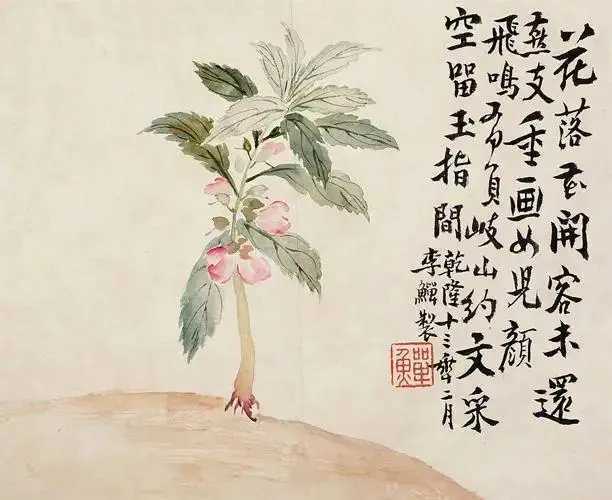 花落花開客未還
燕支重画女兒顏
飛鳴有負岐山約文采
空留玉指間
乾隆十三年二月
李鱓製
鱓